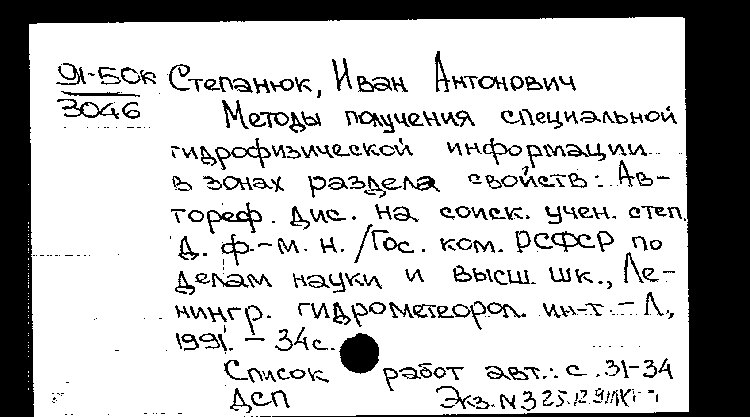 91-50к Степанюк, Иван Антонович
3046
Методы получения специальной
гидрофизической информации
в зонах раздела свойств: Ав-
тореф. дис. на соиск. учен. степ.
д. ф.-м. н. /Гос. ком. РСФСР по
делам науки и высш. шк., Ле-
нингр. гидрометеорол. ин-т. - Л.,
1991. - 34с.
Список работ авт.: с. 31-34
ДСП Экз. N 3 25.12.91